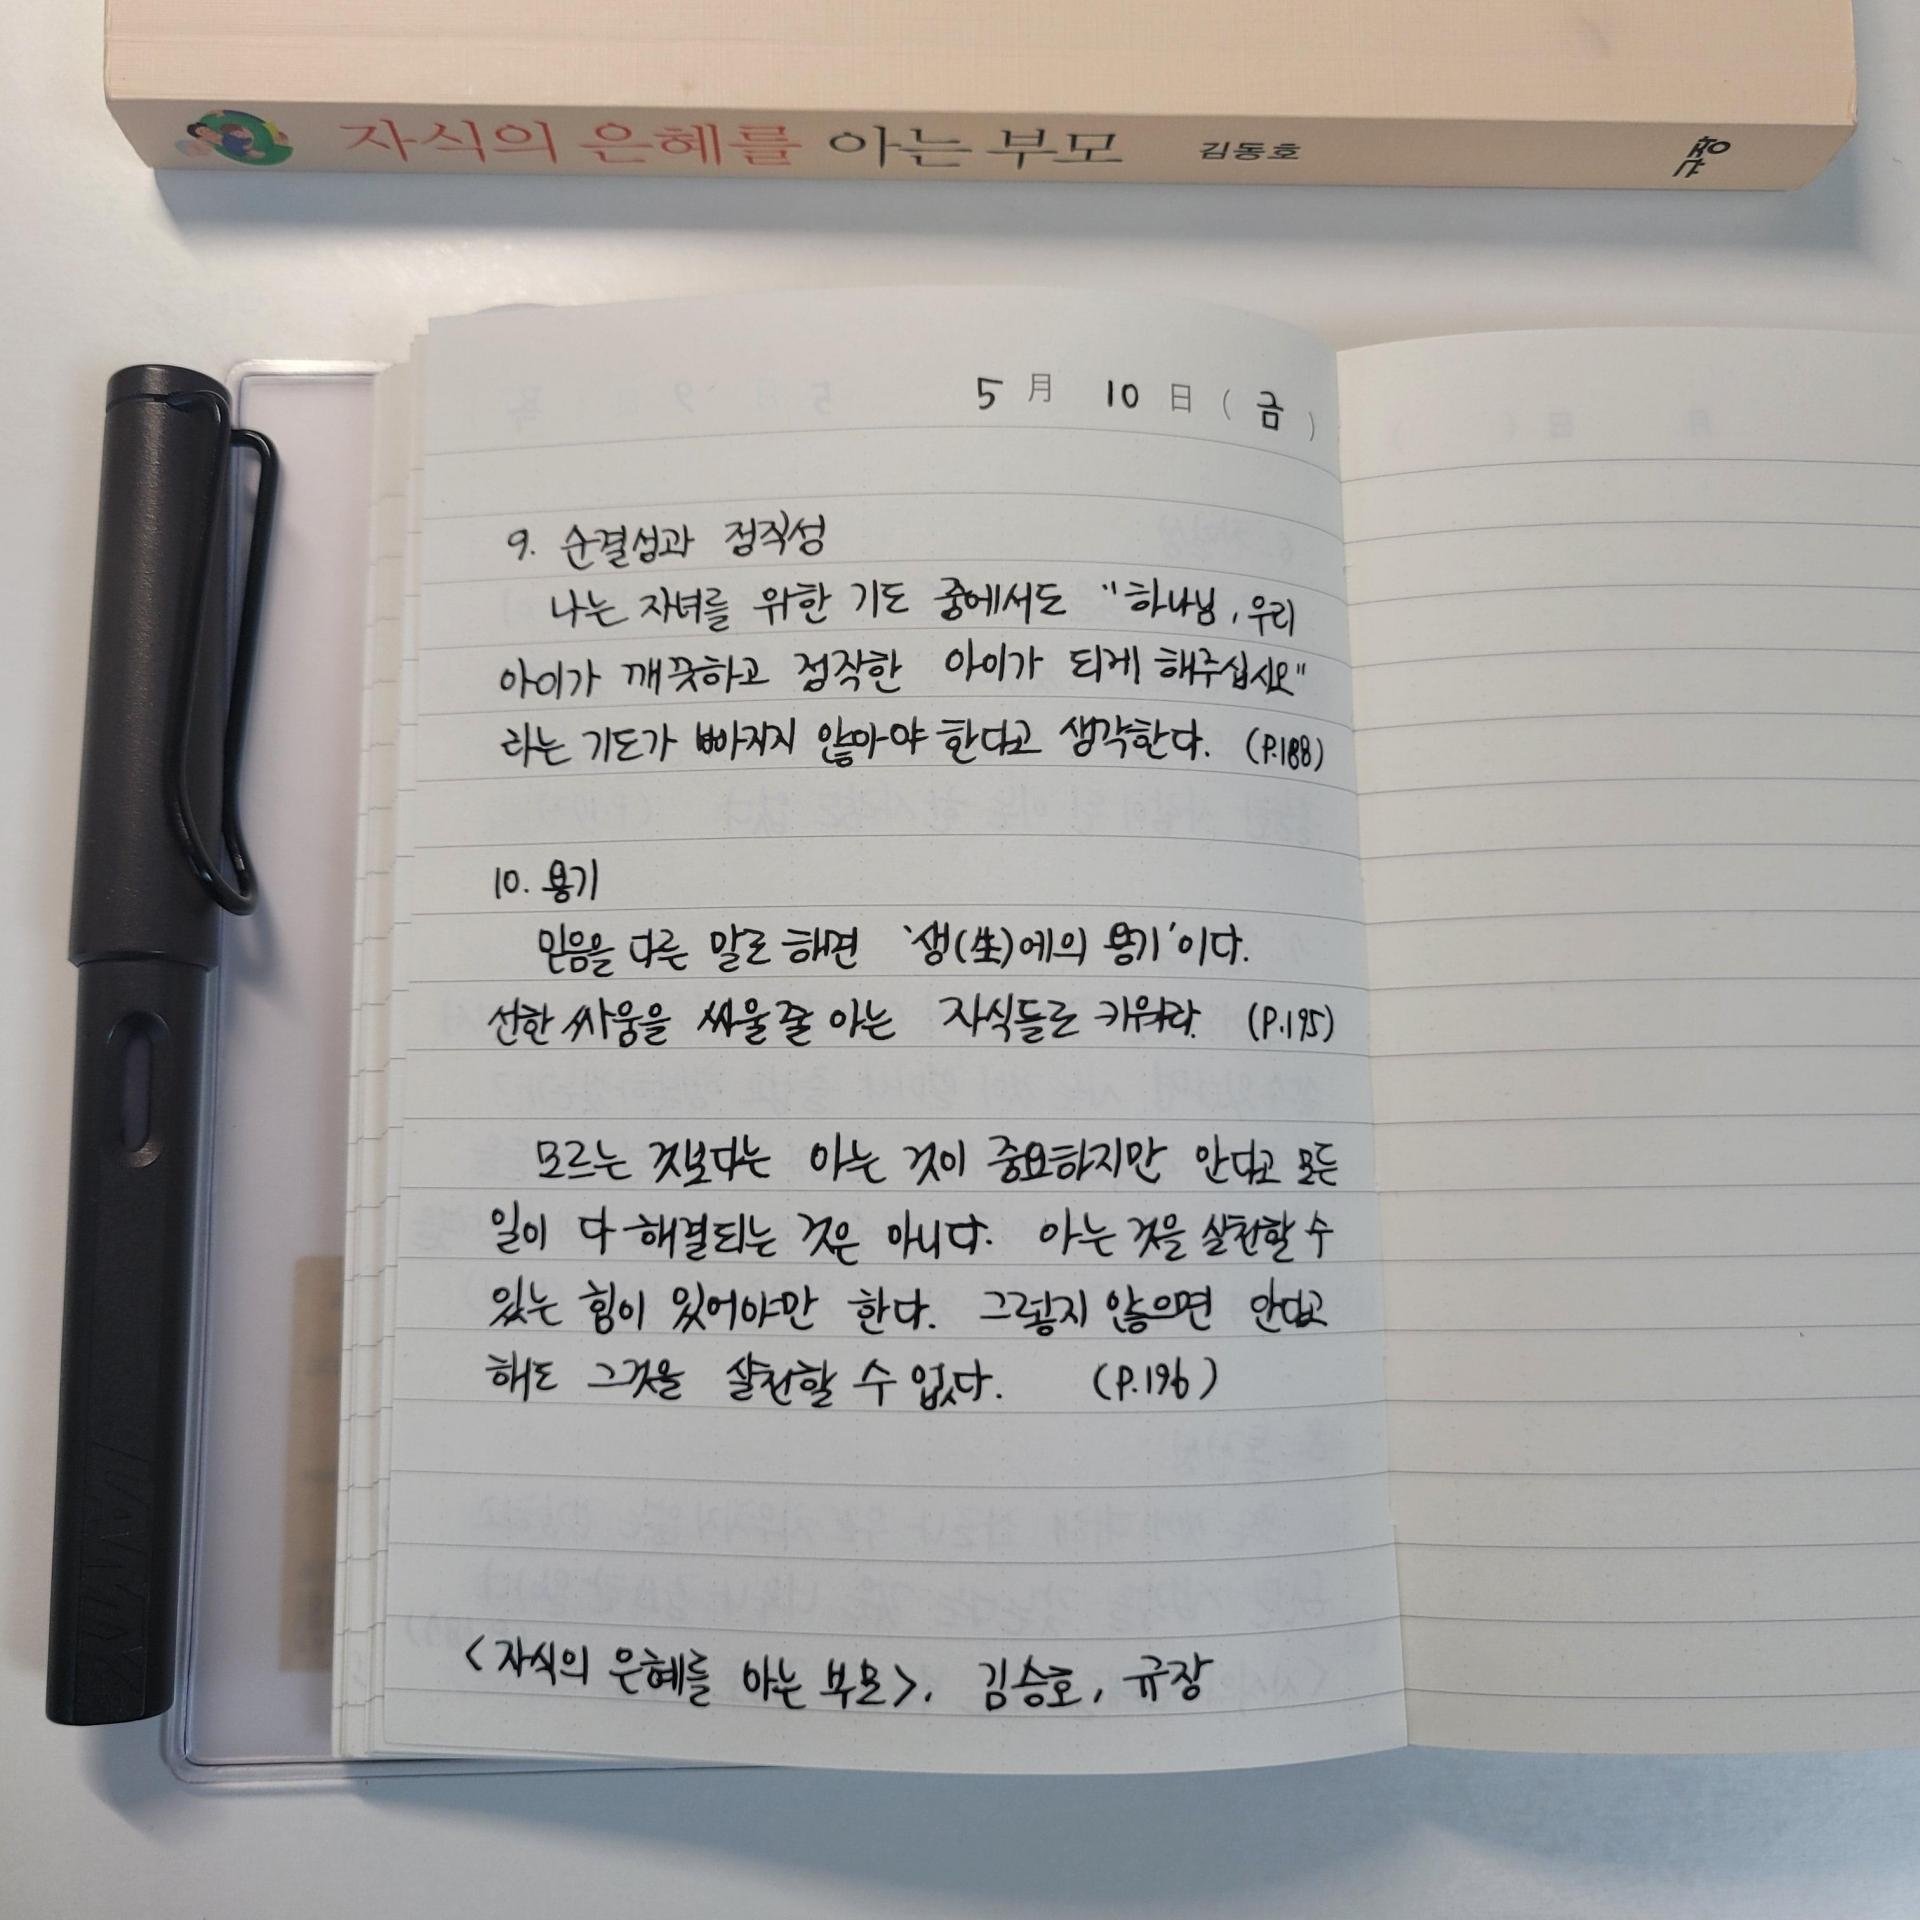 자식의 은혜를 아는 부모 김동호 규장
5 月 10 日 ( 금 )
9. 순결성과 정직성
나는 자녀를 위한 기도 중에서도 "하나님, 우리
아이가 깨끗하고 정직한 아이가 되게 해주십시오"
라는 기도가 빠지지 않아야 한다고 생각한다. (P.188)
10. 용기
믿음을 다른 말로 해면 '생(生)에의 용기'이다.
선한 싸움을 싸울 줄 아는 자식들로 키워라. (P.195)
모르는 것보다는 아는 것이 중요하지만 안다고 모든
일이 다 해결되는 것은 아니다. 아는 것을 실천할 수
있는 힘이 있어야만 한다. 그렇지 않으면 안다고
해도 그것을 실천할 수 없다. (P.196)
<자식의 은혜를 아는 부모>, 김승호, 규장
LAMY